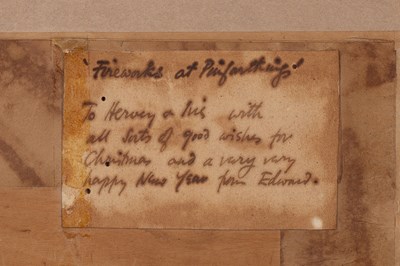 'Fireworks at Pinfarthings'
To Hervey & Iris with
all Sorts of good wishes for
Christmas and a very very
happy New Year from Edward.